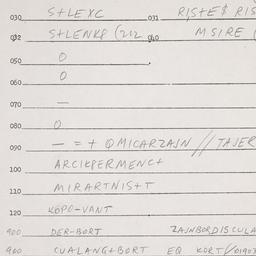 030 S+LEXC 031 RISTE$ RIS
032 S+LENKP (212 040 MSIRE (
050 O
060 O
070 —
080 O
090 — = + QMICARZAJN // TAJER
100 ARCIKPERMENC+
110 MIRARTNIS+T
120 KOPO-VANT
900 DER-BORT ZAJNBORDISCULA
900 CUALANG+BORT EQ KORT/01903